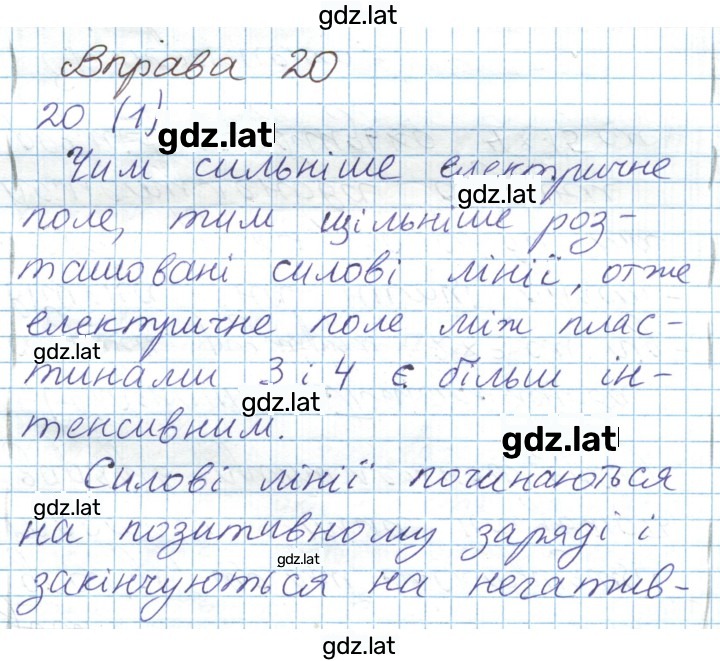 gdz.lat
Вправа 20
20 (1)
gdz.lat
Чим сильніше електричне
gdz.lat
поле, тим щільніше роз-
ташовані силові лінії, отже
електричне поле між плас-
gdz.lat
тинами 3 і 4 є більш ін-
gdz.lat
тенсивним.
gdz.lat
Силові лінії починаються
gdz.lat
на позитивному заряді і
gdz.lat
закінчуються на негатив-
gdz.lat